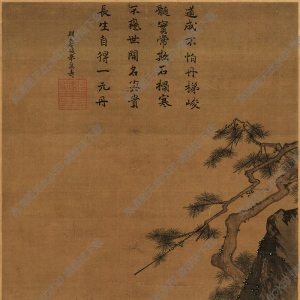 道成不怕丹梯峻
髓實常欺石榻寒
不戀世間名貴
長生自得一元丹